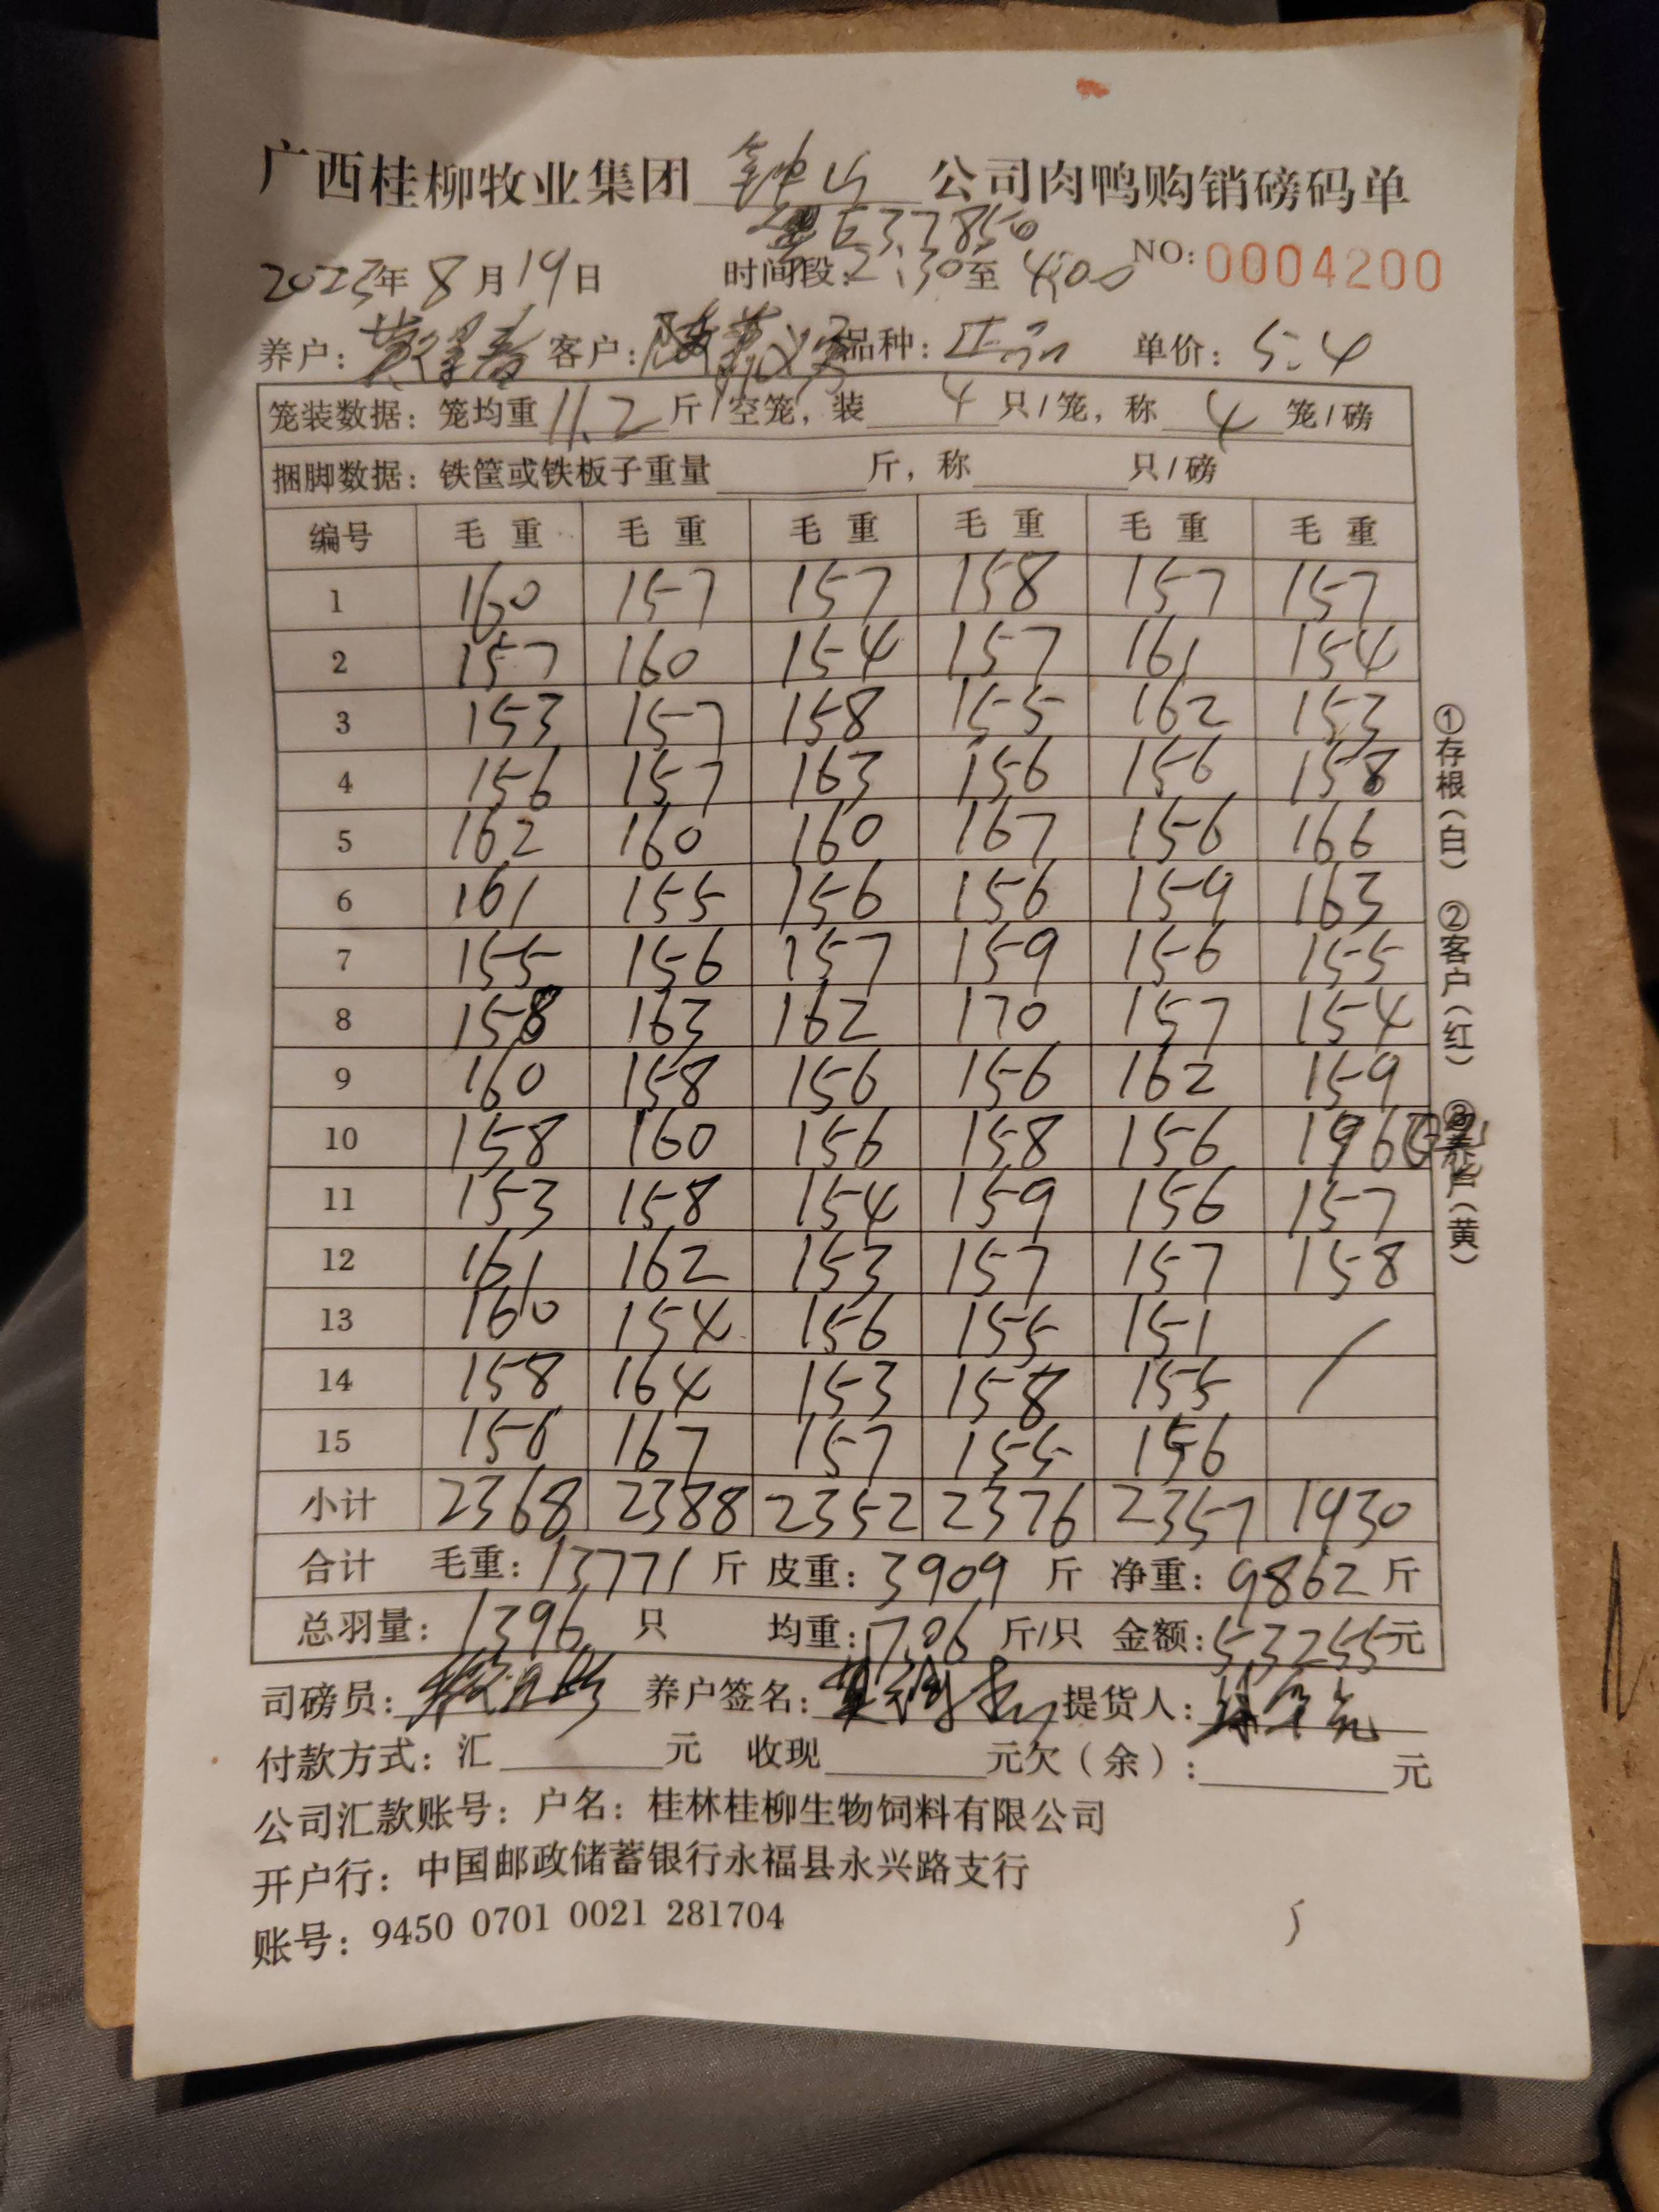 广西桂柳牧业集团 钟山 公司肉鸭购销磅码单
E33850
2023年8月19日 时间段:2:30至4:00 NO:0004200
养户: 客户: 品种: 单价:5.4
笼装数据:笼均重11.2斤/空笼,装4只/笼,称4笼/磅
捆脚数据:铁筐或铁板子重量 斤,称 只/磅
编号 毛重 毛重 毛重 毛重 毛重 毛重
1 160 157 157 158 157 157
2 157 160 154 157 161 154
3 153 157 158 155 162 153
4 156 157 163 156 156 158
5 162 160 160 167 156 166
6 161 155 156 156 159 163
7 155 156 157 159 156 155
8 158 163 162 170 157 154
9 160 158 156 156 162 159
10 158 160 156 158 156 196
11 153 158 154 159 156 157
12 161 162 153 157 157 158
13 160 154 156 155 151
14 158 164 153 158 155
15 156 167 157 155 156
小计 2368 2388 2352 2376 2357 1930
合计 毛重:13771斤 皮重:3909斤 净重:9862斤
总羽量:1396只 均重:7.06斤/只 金额:53255元
司磅员: 养户签名: 提货人:
付款方式:汇 元 收现 元欠(余): 元
公司汇款账号:户名:桂林桂柳生物饲料有限公司
开户行:中国邮政储蓄银行永福县永兴路支行
账号:9450 0701 0021 281704
①存根(白) ②客户(红) ③养户(黄)